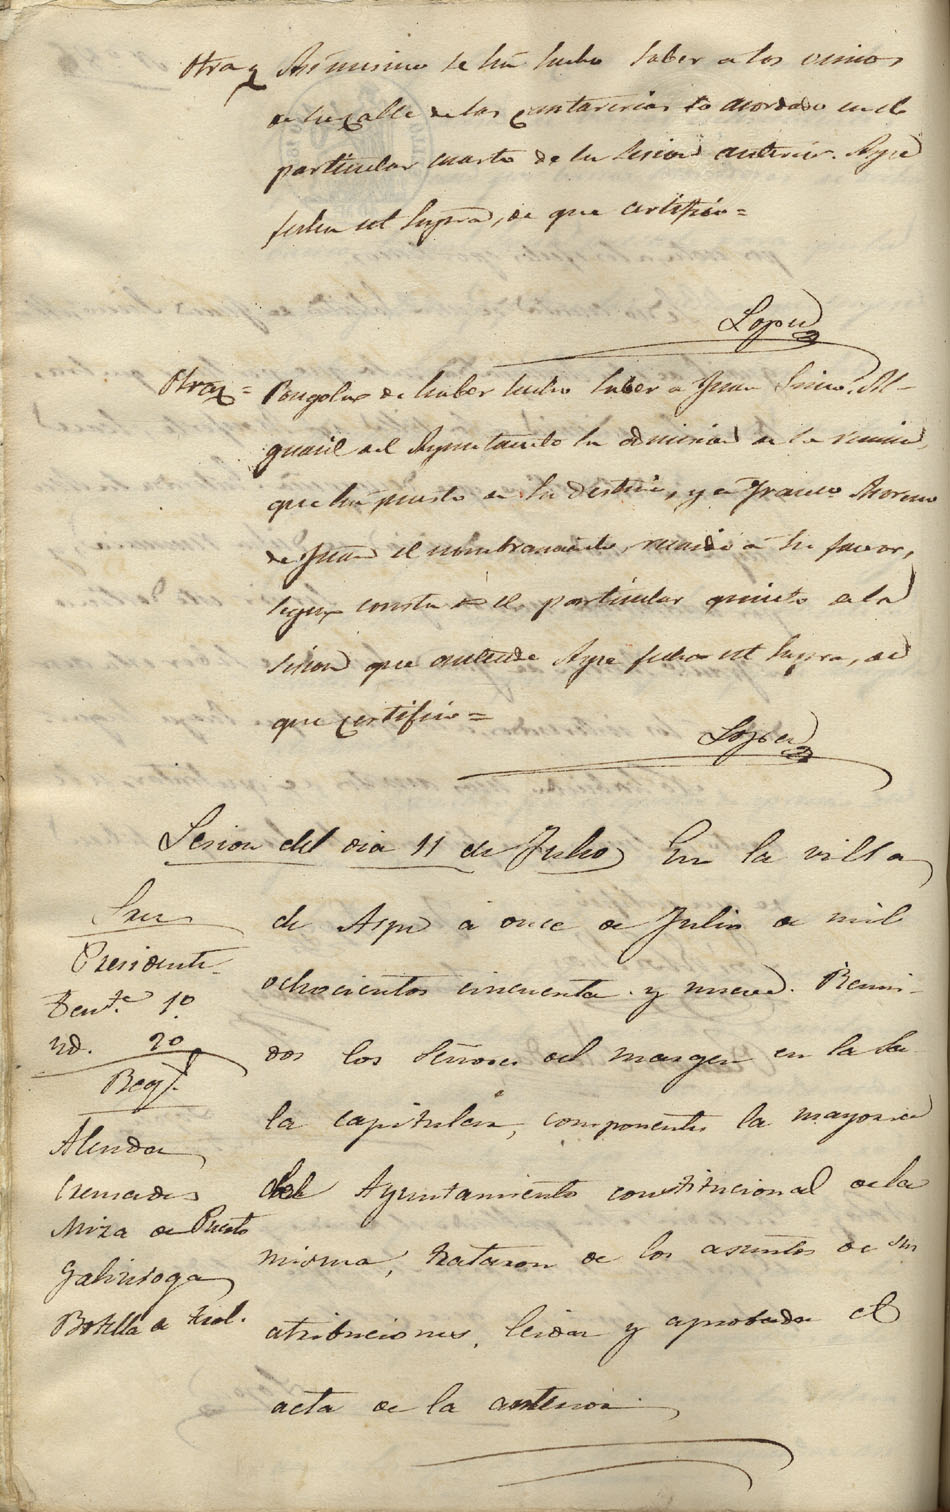 Otra= Asimismo se ha hecho saber a los vecinos
de la calle de las Cantarerias lo acordado en el
particular cuarto de la sesion anterior. Aspe
fecha ut supra, de que certifico=
Lopez
Otra= Pongola de haber hecho saber a Juan Al-
guacil del Ayuntamto la admision de la renuncia
que ha puesto de su destino, y a Franco Moreno
de Juan el nombramiento recaido a su favor,
segun consta en el particular quinto de la
sesion que antecede Aspe fecha ut supra, de
que certifico=
Lopez
Sesion del dia 11 de Julio En la villa
de Aspe a once de Julio de mil
ochocientos cincuenta y nueve. Reuni-
dos los Señores del margen en la Sa-
la capitular, componentes la mayoria
del Ayuntamiento constitucional de la
misma, trataron de los asuntos de sus
atribuciones, leida y aprobada el
acta de la anterior.
Sres
Presidente
Tente 1o
id. 2o
Reg.
Alenda
Cremades
Mira de Puerto
Galinsoga
Botella de Fisl.